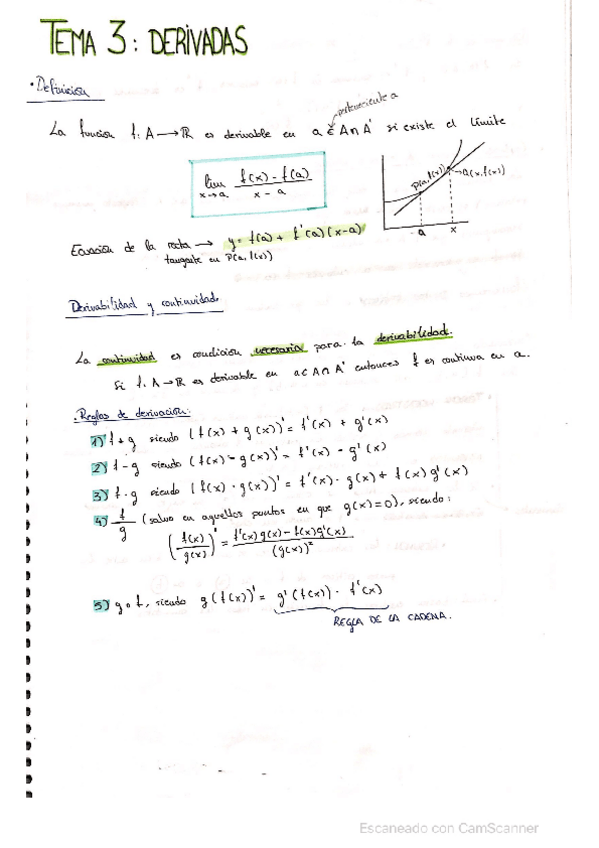 TEMA 3: DERIVADAS
· Definición
perteneciente a
La función f: A → R es derivable en a ∈ A ∩ A' si existe el límite
lim x→a f(x) - f(a) / x - a
P(a, f(x)) → Q(x, f(x))
a x
Ecuación de la recta → y = f(a) + f'(a)(x-a)
tangente en P(a, f(x))
Derivabilidad y continuidad
La continuidad es condición necesaria para la derivabilidad.
Si f: A → R es derivable en a ∈ A ∩ A' entonces f es continua en a.
· Reglas de derivación:
1) f + g siendo (f(x) + g(x))' = f'(x) + g'(x)
2) f - g siendo (f(x) - g(x))' = f'(x) - g'(x)
3) f · g siendo (f(x) · g(x))' = f'(x) · g(x) + f(x) g'(x)
4) f/g (salvo en aquellos puntos en que g(x)=0), siendo:
(f(x)/g(x))' = f'(x)g(x) - f(x)g'(x) / (g(x))²
5) g o f, siendo g(f(x))' = g'(f(x)) · f'(x)
REGLA DE LA CADENA.
Escaneado con CamScanner